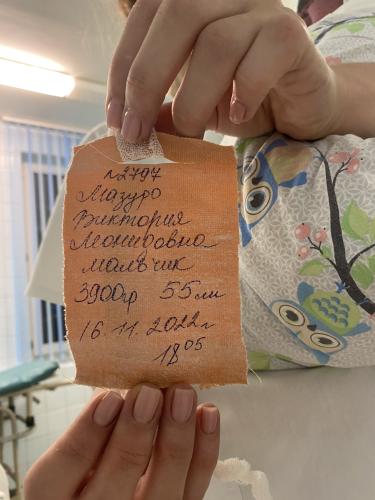 №2797
Мазуро
Виктория
Леонидовна
мальчик
3900гр 55см
16.11.2022г
18 05